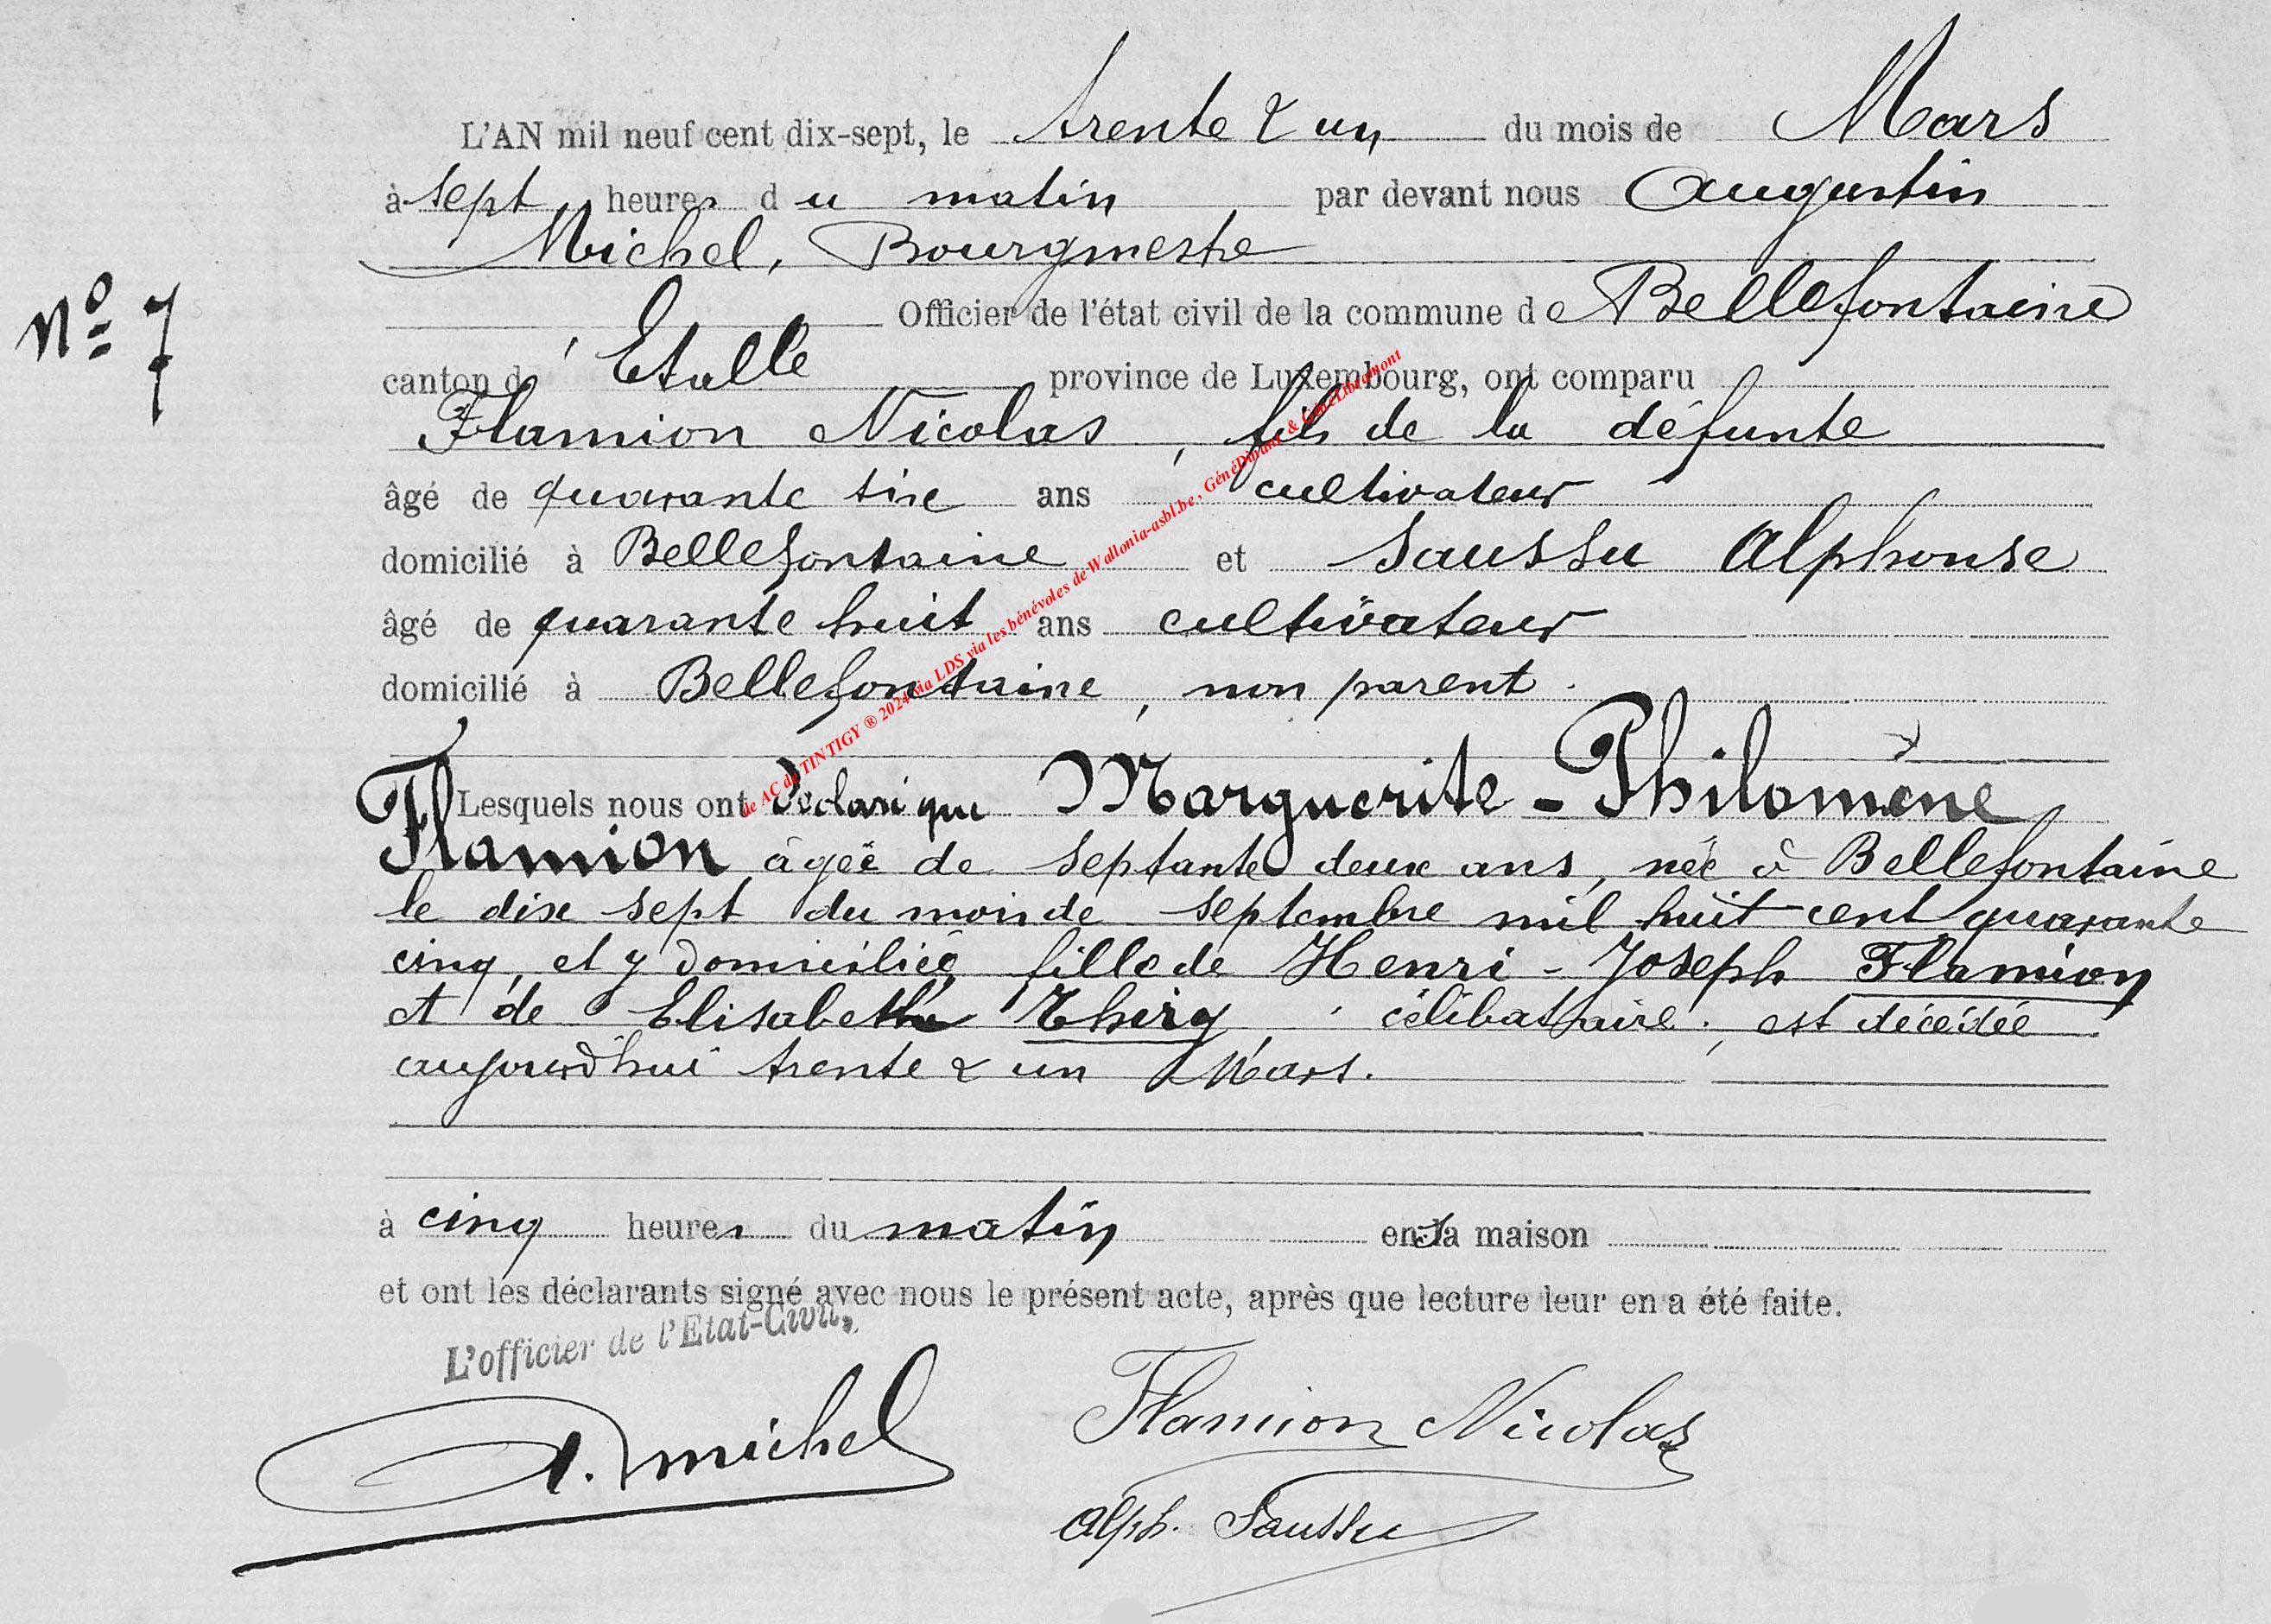 L'AN mil neuf cent dix-sept, le trente & un du mois de Mars
à sept heures du matin par devant nous Augustin
Michel, Bourgmestre
Officier de l'état civil de la commune de Bellefontaine
N° 7
canton d'Etalle province de Luxembourg, ont comparu
Flamion Nicolas, fils de la défunte
âgé de quarante six ans cultivateur
domicilié à Bellefontaine et Saussu Alphonse
âgé de quarante huit ans cultivateur
domicilié à Bellefontaine, non parent.
Lesquels nous ont déclaré que Marguerite-Philomène
Flamion âgée de septante deux ans, née à Bellefontaine
le dix sept du mois de septembre mil huit cent quarante
cinq, et y domiciliée, fille de Henri-Joseph Flamion
et de Elisabeth Thiry, célibataire, est décédée
aujourd'hui trente & un Mars.
à cinq heures du matin en sa maison
et ont les déclarants signé avec nous le présent acte, après que lecture leur en a été faite.
L'officier de l'Etat-Civil,
A. Michel
Flamion Nicolas
Alph. Saussu
de AC de TINTIGY ® 2024 via LDS via les bénévoles de Wallonia-asbl.be, GénéDinant & GénéLibramont